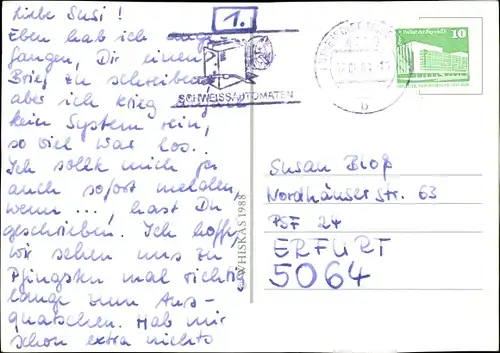 Liebe Susi!
Eben hab ich
fangen, Dir einen
Brief zu schreiben
aber ich krieg
kein System rein,
so viel war los..
Ich sollte mich ja
auch sofort melden,
wenn ..., hast Du
geschrieben. Ich hoffe,
wir sehen uns zu
Pfingsten mal richtig
lange zum Aus-
quatschen. Hab mir
schon extra nichts
1.
SCHWEISSAUTOMATEN
b
Palast der Republik
10
WHISKAS 1988
Susan Bloß
Nordhäuser Str. 63
PSF 24
ERFURT
5064